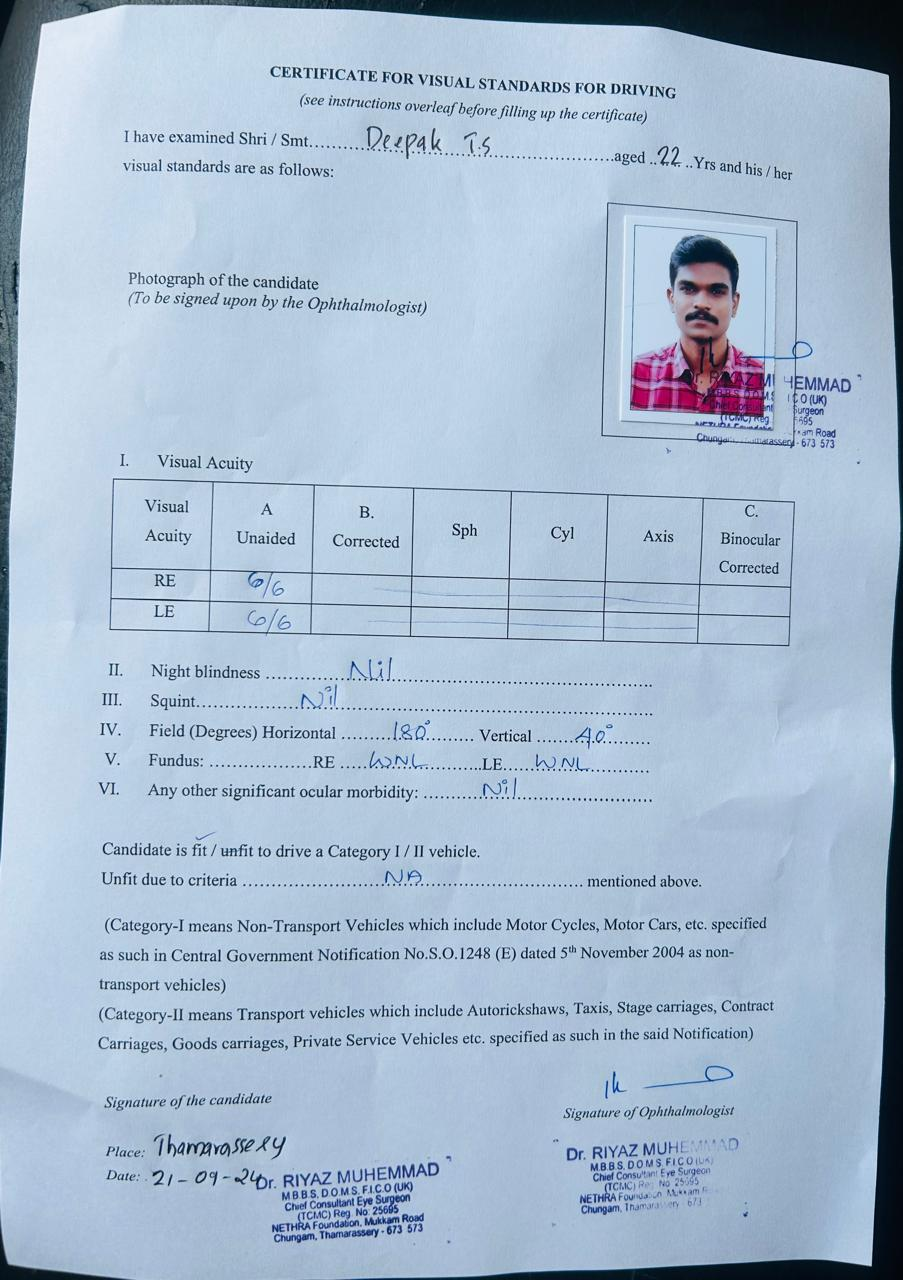 CERTIFICATE FOR VISUAL STANDARDS FOR DRIVING
(see instructions overleaf before filling up the certificate)
I have examined Shri / Smt......... Deepak T.S ..........................aged ..22 ..Yrs and his / her
visual standards are as follows:
Photograph of the candidate
(To be signed upon by the Ophthalmologist)
Dr. RIYAZ MUHEMMAD
M.B.B.S, D.O.M.S, F.I.C.O (UK)
Chief Consultant Eye Surgeon
(TCMC) Reg. No: 25695
NETHRA Foundation, Mukkam Road
Chungam, Thamarassery - 673 573
I. Visual Acuity
Visual Acuity | A Unaided | B. Corrected | Sph | Cyl | Axis | C. Binocular Corrected
RE 6/6
LE 6/6
II. Night blindness ................Nil................
III. Squint...................Nil................
IV. Field (Degrees) Horizontal .........180°......... Vertical ......40°......
V. Fundus: ..................RE .....WNL.........LE.....WNL.....
VI. Any other significant ocular morbidity: .........Nil................
Candidate is fit / unfit to drive a Category I / II vehicle.
Unfit due to criteria .........................NA......................... mentioned above.
(Category-I means Non-Transport Vehicles which include Motor Cycles, Motor Cars, etc. specified
as such in Central Government Notification No.S.O.1248 (E) dated 5th November 2004 as non-
transport vehicles)
(Category-II means Transport vehicles which include Autorickshaws, Taxis, Stage carriages, Contract
Carriages, Goods carriages, Private Service Vehicles etc. specified as such in the said Notification)
Signature of the candidate
Signature of Ophthalmologist
Place: Thamarassery
Date: 21-09-24
Dr. RIYAZ MUHEMMAD
M.B.B.S, D.O.M.S, F.I.C.O (UK)
Chief Consultant Eye Surgeon
(TCMC) Reg. No: 25695
NETHRA Foundation, Mukkam Road
Chungam, Thamarassery - 673 573
Dr. RIYAZ MUHEMMAD
M.B.B.S, D.O.M.S, F.I.C.O (UK)
Chief Consultant Eye Surgeon
(TCMC) Reg. No: 25695
NETHRA Foundation, Mukkam
Chungam, Thamarassery - 673